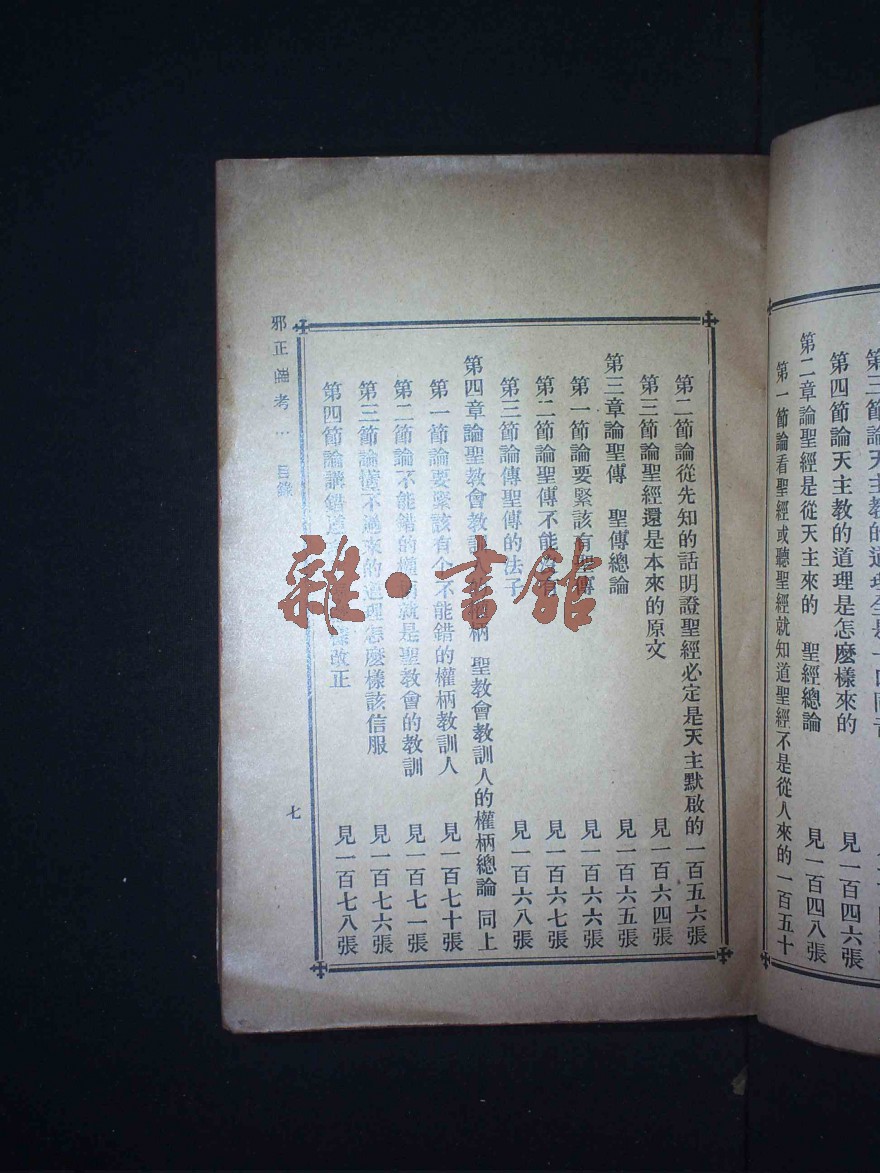 第三節論天主教的道理
第四節論天主教的道理是怎麽樣來的 見一百四六張
第二章論聖經是從天主來的 聖經總論 見一百四八張
第一節論看聖經或聽聖經就知道聖經不是從人來的一百五十
第二節論從先知的話明證聖經必定是天主默啟的一百五六張
第三節論聖經還是本來的原文 見一百六四張
第三章論聖傳 聖傳總論 見一百六五張
第一節論要緊該有聖傳 見一百六六張
第二節論聖傳不能沒有 見一百六七張
第三節論傳聖傳的法子 見一百六八張
第四章論聖教會教訓人的權柄 聖教會教訓人的權柄總論 同上
第一節論要緊該有个不能錯的權柄教訓人 見一百七十張
第二節論不能錯的權柄就是聖教會的教訓 見一百七一張
第三節論懂不過來的道理怎麽樣該信服 見一百七六張
第四節論講錯道 樣改正 見一百七八張
邪正理考 … 目錄
七
雜·書館